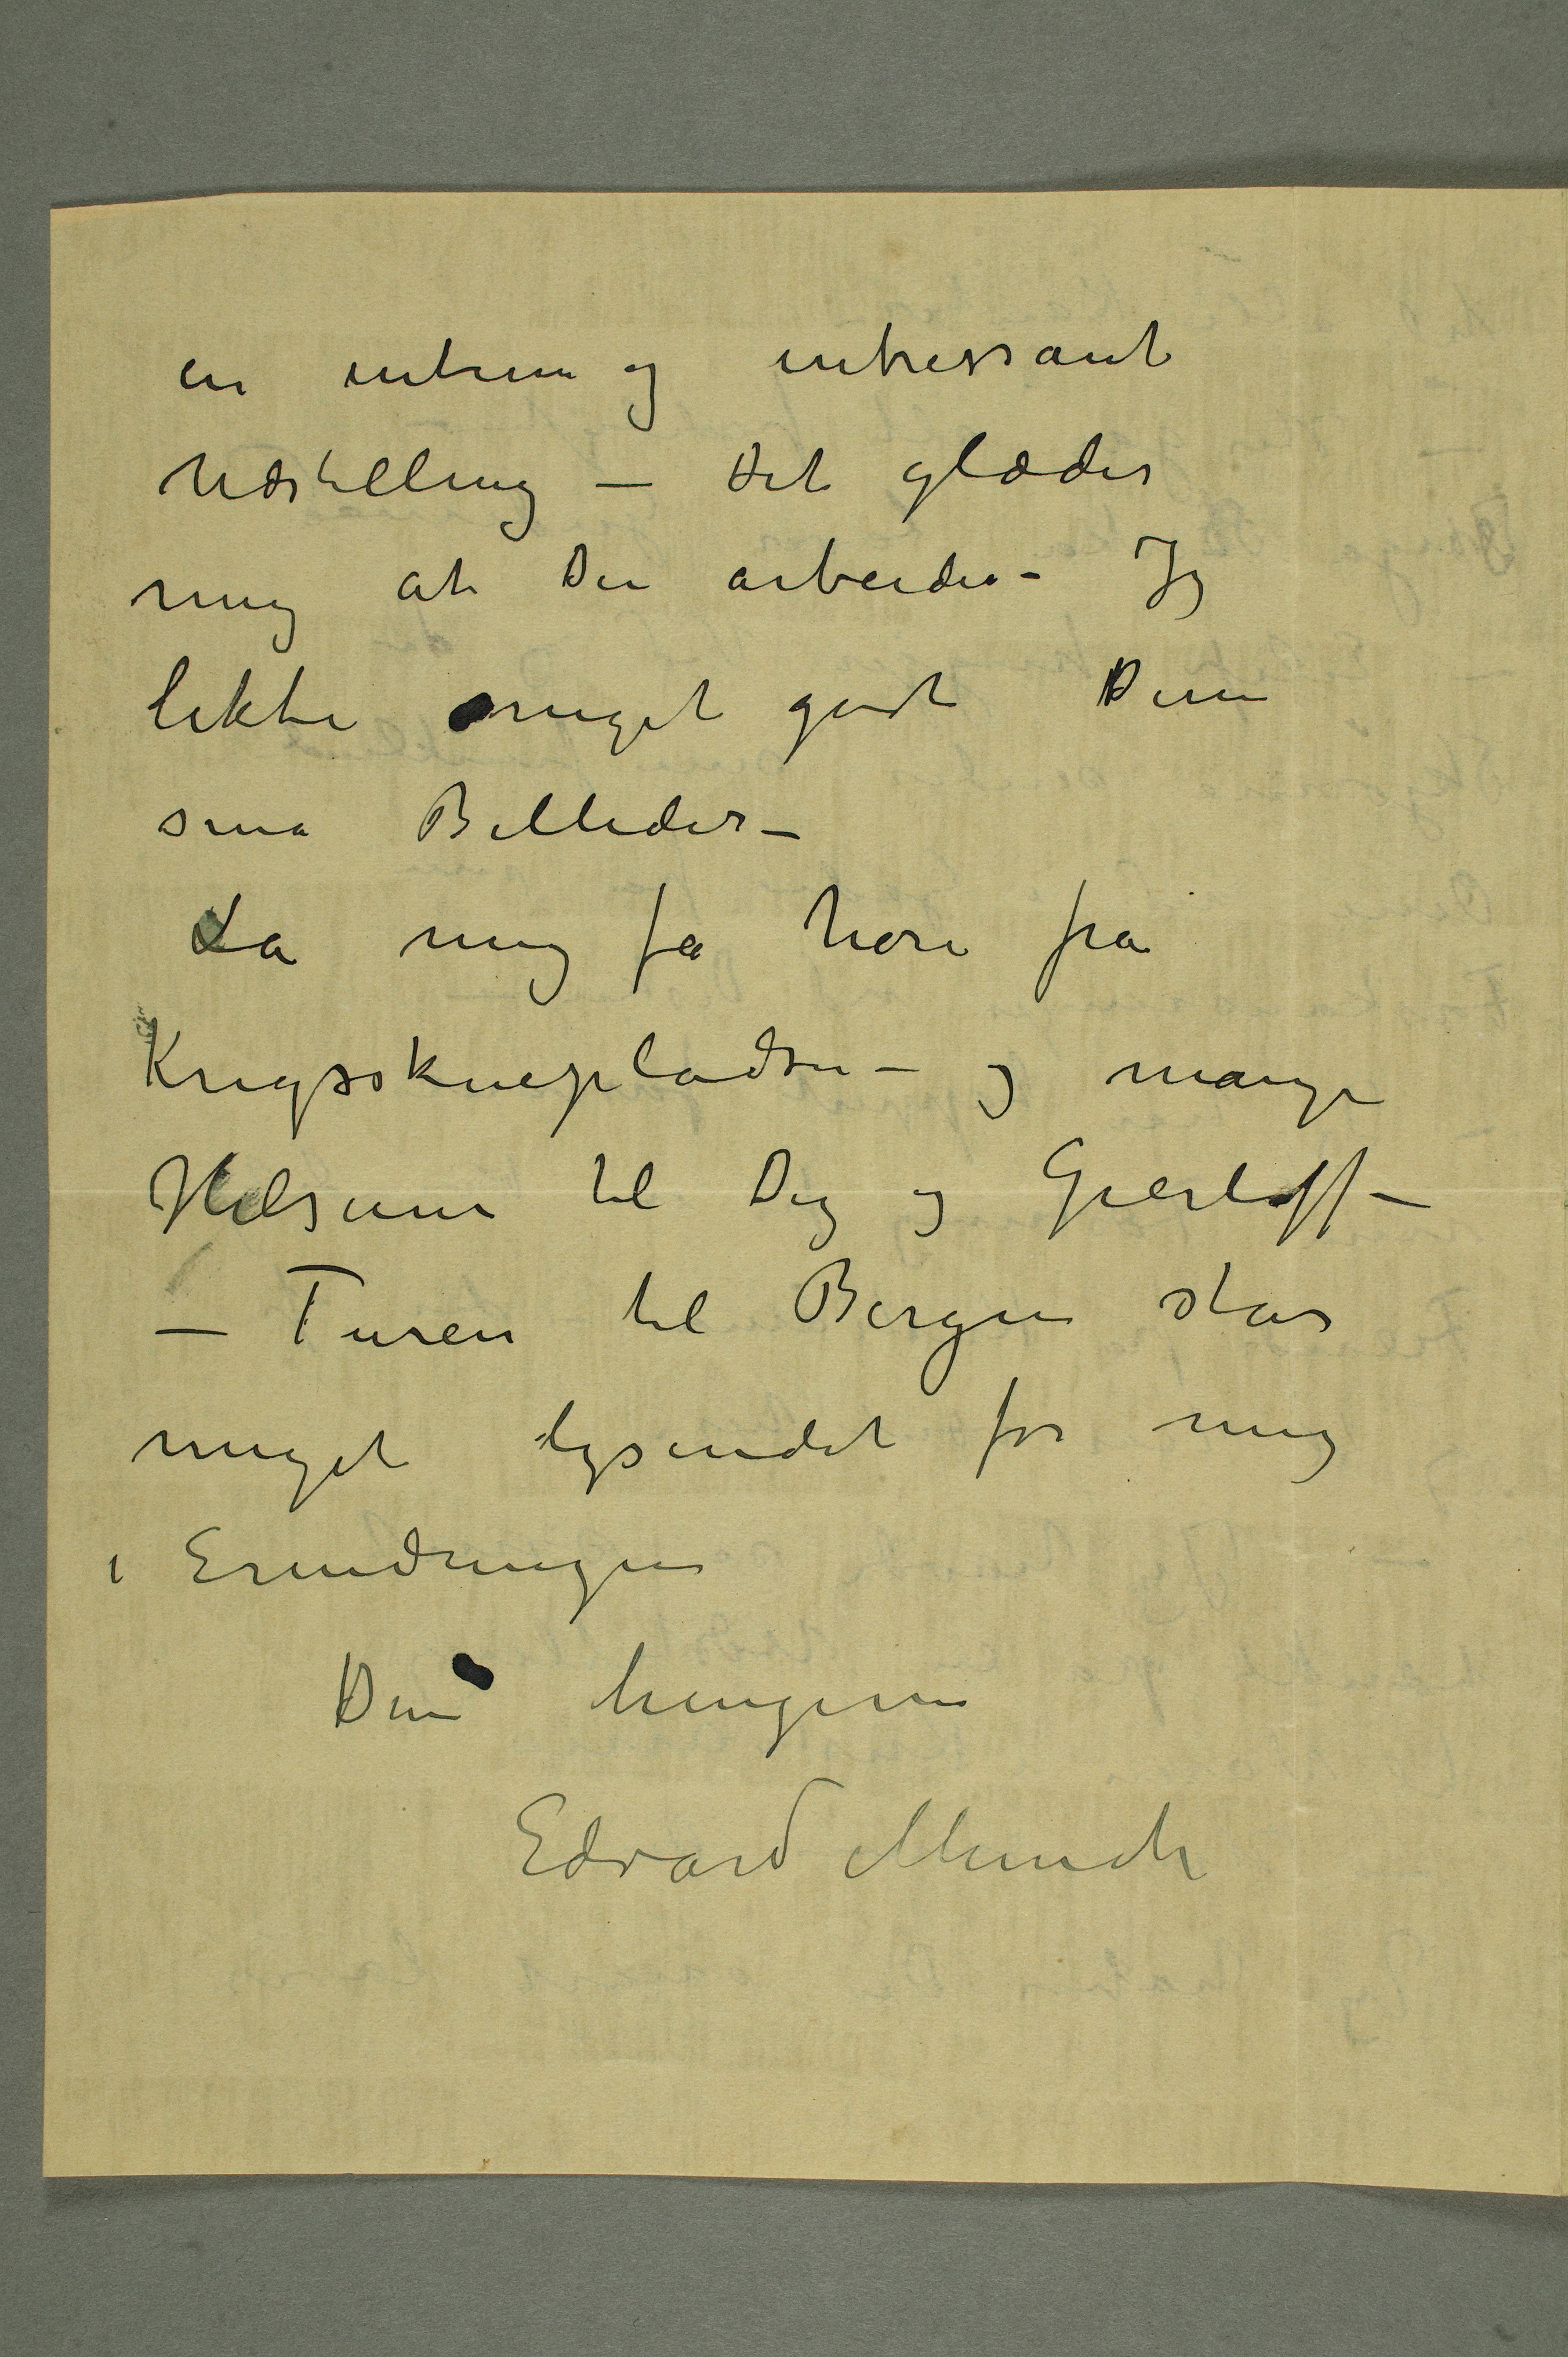 en intim og intressant
Udstilling – Det glæder
mig at Du arbeider – Jeg
likte meget godt Dine
små Billeder –
La mig få høre fra
Krigsskuepladsen – og mange
Hilsener til Dig og Gierløff –
– Turen til Bergen står
meget lysende for mig
i Erindringen
Din hengivne
Edvard Munch